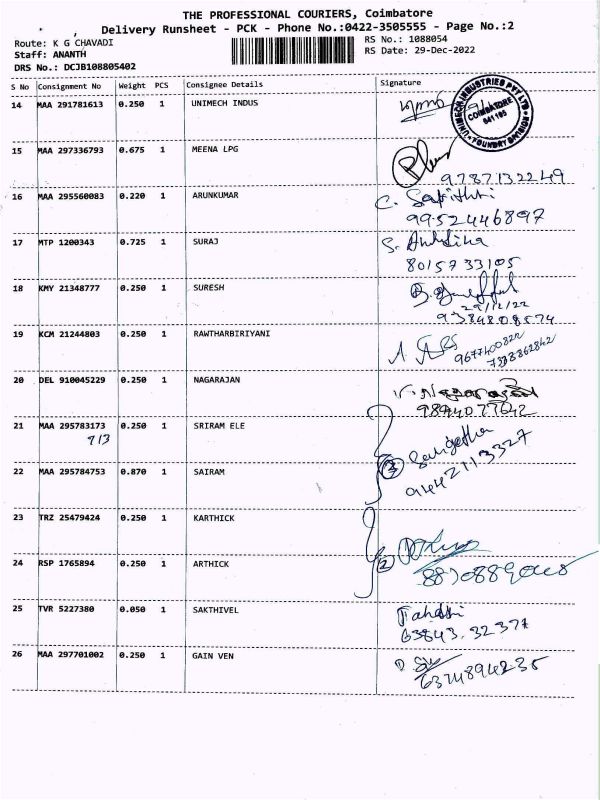 THE PROFESSIONAL COURIERS, Coimbatore
Delivery Runsheet - PCK - Phone No.:0422-3505555 - Page No.:2
Route: K G CHAVADI
RS No.: 1088054
Staff: ANANTH
RS Date: 29-Dec-2022
DRS No.: DCJB108805402
S No Consignment No Weight PCS Consignee Details Signature
14 MAA 291781613 0.250 1 UNIMECH INDUS
UNIMECH INDUSTRIES PVT LTD
COIMBATORE
641 105
FOUNDRY DIVISION
15 MAA 297336793 0.675 1 MEENA LPG
9787132249
16 MAA 295560083 0.220 1 ARUNKUMAR
9952446897
17 MTP 1200343 0.725 1 SURAJ
8015733105
18 KMY 21348777 0.250 1 SURESH
29/12/22
9384808574
19 KCM 21244803 0.250 1 RAWTHARBIRIYANI
20 DEL 910045229 0.250 1 NAGARAJAN
21 MAA 295783173 0.250 1 SRIRAM ELE
713
Sangetha
9442113327
22 MAA 295784753 0.870 1 SAIRAM
23 TRZ 25479424 0.250 1 KARTHICK
24 RSP 1765894 0.250 1 ARTHICK
2
25 TVR 5227380 0.050 1 SAKTHIVEL
63843 32377
26 MAA 297701002 0.250 1 GAIN VEN